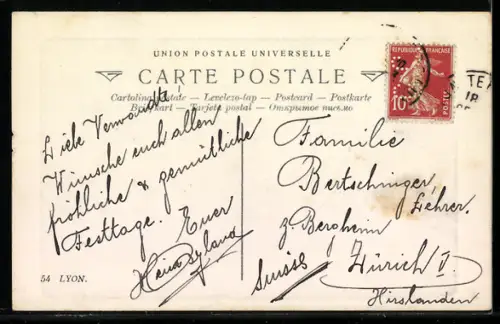 UNION POSTALE UNIVERSELLE
CARTE POSTALE
Cartolina postale — Levelezo-lap — Postcard — Postkarte
Briefkart — Tarjeta postal — Открытое письмо
REPUBLIQUE FRANÇAISE
10
POSTES
Liebe Verwandte!
Wünsche euch allen
fröhliche & gemütliche
Festtage. Euer
Familie
Bertschinger,
Lehrer.
z. Bergheim
Zürich V.
Hirslanden
Suisse
54 LYON.